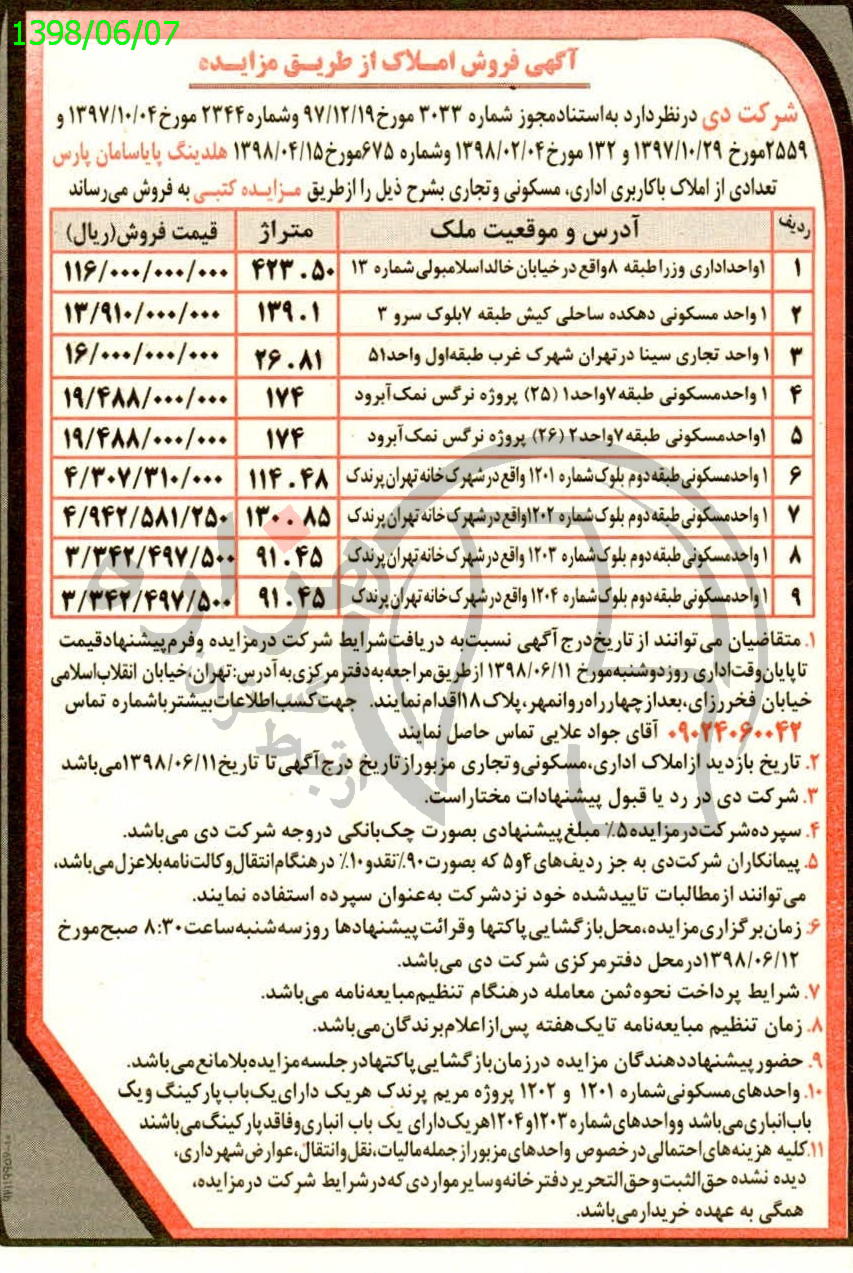 1398/06/07
آگهی فروش املاک از طریق مزایده
شرکت دی درنظردارد به‌استنادمجوز شماره ۳۰۳۳ مورخ۹۷/۱۲/۱۹ وشماره۲۳۴۴ مورخ۱۳۹۷/۱۰/۰۴ و
۲۵۵۹مورخ ۱۳۹۷/۱۰/۲۹ و ۱۳۲ مورخ۱۳۹۸/۰۲/۰۴ وشماره ۶۷۵مورخ۱۳۹۸/۰۴/۱۵ هلدینگ پایاسامان پارس
تعدادی از املاک باکاربری اداری، مسکونی وتجاری بشرح ذیل را ازطریق مزایده کتبی به فروش می‌رساند
ردیف آدرس و موقعیت ملک متراژ قیمت فروش(ریال)
۱ ۱واحداداری وزراطبقه ۸واقع درخیابان خالداسلامبولی شماره ۱۳ ۴۲۳.۵۰ ۱۱۶/۰۰۰/۰۰۰/۰۰۰
۲ ۱ واحد مسکونی دهکده ساحلی کیش طبقه ۷بلوک سرو ۳ ۱۳۹.۱ ۱۳/۹۱۰/۰۰۰/۰۰۰
۳ ۱ واحد تجاری سینا درتهران شهرک غرب طبقه‌اول واحد۵۱ ۲۶.۸۱ ۱۶/۰۰۰/۰۰۰/۰۰۰
۴ ۱ واحدمسکونی طبقه۷واحد۱ (۲۵) پروژه نرگس نمک‌آبرود ۱۷۴ ۱۹/۴۸۸/۰۰۰/۰۰۰
۵ ۱واحدمسکونی طبقه۷واحد۲ (۲۶) پروژه نرگس نمک‌آبرود ۱۷۴ ۱۹/۴۸۸/۰۰۰/۰۰۰
۶ ۱ واحدمسکونی‌طبقه‌دوم بلوک‌شماره ۱۲۰۱ واقع‌درشهرک‌خانه‌تهران‌پرندک ۱۱۴.۴۸ ۴/۳۰۷/۳۱۰/۰۰۰
۷ ۱ واحدمسکونی‌طبقه‌دوم بلوک‌شماره ۱۲۰۲واقع‌درشهرک‌خانه‌تهران‌پرندک ۱۳۰.۸۵ ۴/۹۴۲/۵۸۱/۲۵۰
۸ ۱ واحدمسکونی‌طبقه‌دوم بلوک‌شماره ۱۲۰۳ واقع‌درشهرک‌خانه‌تهران‌پرندک ۹۱.۴۵ ۳/۳۴۲/۴۹۷/۵۰۰
۹ ۱ واحدمسکونی‌طبقه‌دوم بلوک‌شماره ۱۲۰۴ واقع‌درشهرک‌خانه‌تهران‌پرندک ۹۱.۴۵ ۳/۳۴۲/۴۹۷/۵۰۰
۱. متقاضیان می‌توانند از تاریخ‌درج آگهی نسبت‌به دریافت‌شرایط شرکت درمزایده وفرم‌پیشنهادقیمت
تاپایان‌وقت‌اداری روزدوشنبه‌مورخ ۱۳۹۸/۰۶/۱۱ ازطریق‌مراجعه‌به‌دفترمرکزی‌به‌آدرس:تهران،خیابان انقلاب‌اسلامی
خیابان فخررازی،بعدازچهارراه‌روانمهر،پلاک۱۸اقدام‌نمایند. جهت‌کسب‌اطلاعات‌بیشترباشماره تماس
۰۹۰۲۴۰۶۰۰۴۲ آقای جواد علایی تماس حاصل نمایند
۲. تاریخ بازدید ازاملاک اداری،مسکونی‌وتجاری مزبورازتاریخ درج‌آگهی‌تا تاریخ۱۳۹۸/۰۶/۱۱می‌باشد
۳. شرکت دی در رد یا قبول پیشنهادات مختاراست.
۴. سپرده‌شرکت‌درمزایده۵٪ مبلغ‌پیشنهادی بصورت چک‌بانکی دروجه شرکت دی می‌باشد.
۵. پیمانکاران شرکت‌دی به جز ردیف‌های۴و۵ که بصورت۹۰٪نقدو۱۰٪ درهنگام‌انتقال‌وکالت‌نامه‌بلاعزل‌می‌باشد،
می‌توانند ازمطالبات تاییدشده خود نزدشرکت به‌عنوان سپرده استفاده نمایند.
۶. زمان‌برگزاری‌مزایده،محل‌بازگشایی‌پاکتها وقرائت‌پیشنهادها روزسه‌شنبه‌ساعت۸:۳۰ صبح‌مورخ
۱۳۹۸/۰۶/۱۲درمحل دفترمرکزی شرکت دی می‌باشد.
۷. شرایط پرداخت نحوه‌ثمن معامله درهنگام تنظیم‌مبایعه‌نامه می‌باشد.
۸. زمان تنظیم مبایعه‌نامه تایک‌هفته پس‌ازاعلام‌برندگان‌می‌باشد.
۹. حضورپیشنهاددهندگان مزایده درزمان‌بازگشایی‌پاکتهادرجلسه‌مزایده‌بلامانع‌می‌باشد.
۱۰. واحدهای‌مسکونی‌شماره ۱۲۰۱ و ۱۲۰۲ پروژه مریم پرندک هریک دارای‌یک‌باب‌پارکینگ ویک
باب‌انباری‌می‌باشد وواحدهای‌شماره۱۲۰۳و۱۲۰۴هریک‌دارای یک باب انباری‌وفاقدپارکینگ‌می‌باشند
۱۱.کلیه هزینه‌های‌احتمالی‌درخصوص واحدهای‌مزبورازجمله‌مالیات،نقل‌وانتقال،عوارض‌شهرداری،
دیده نشده حق‌الثبت‌وحق‌التحریردفترخانه‌وسایرمواردی‌که‌درشرایط شرکت درمزایده،
همگی به عهده خریدارمی‌باشد.
هزاره